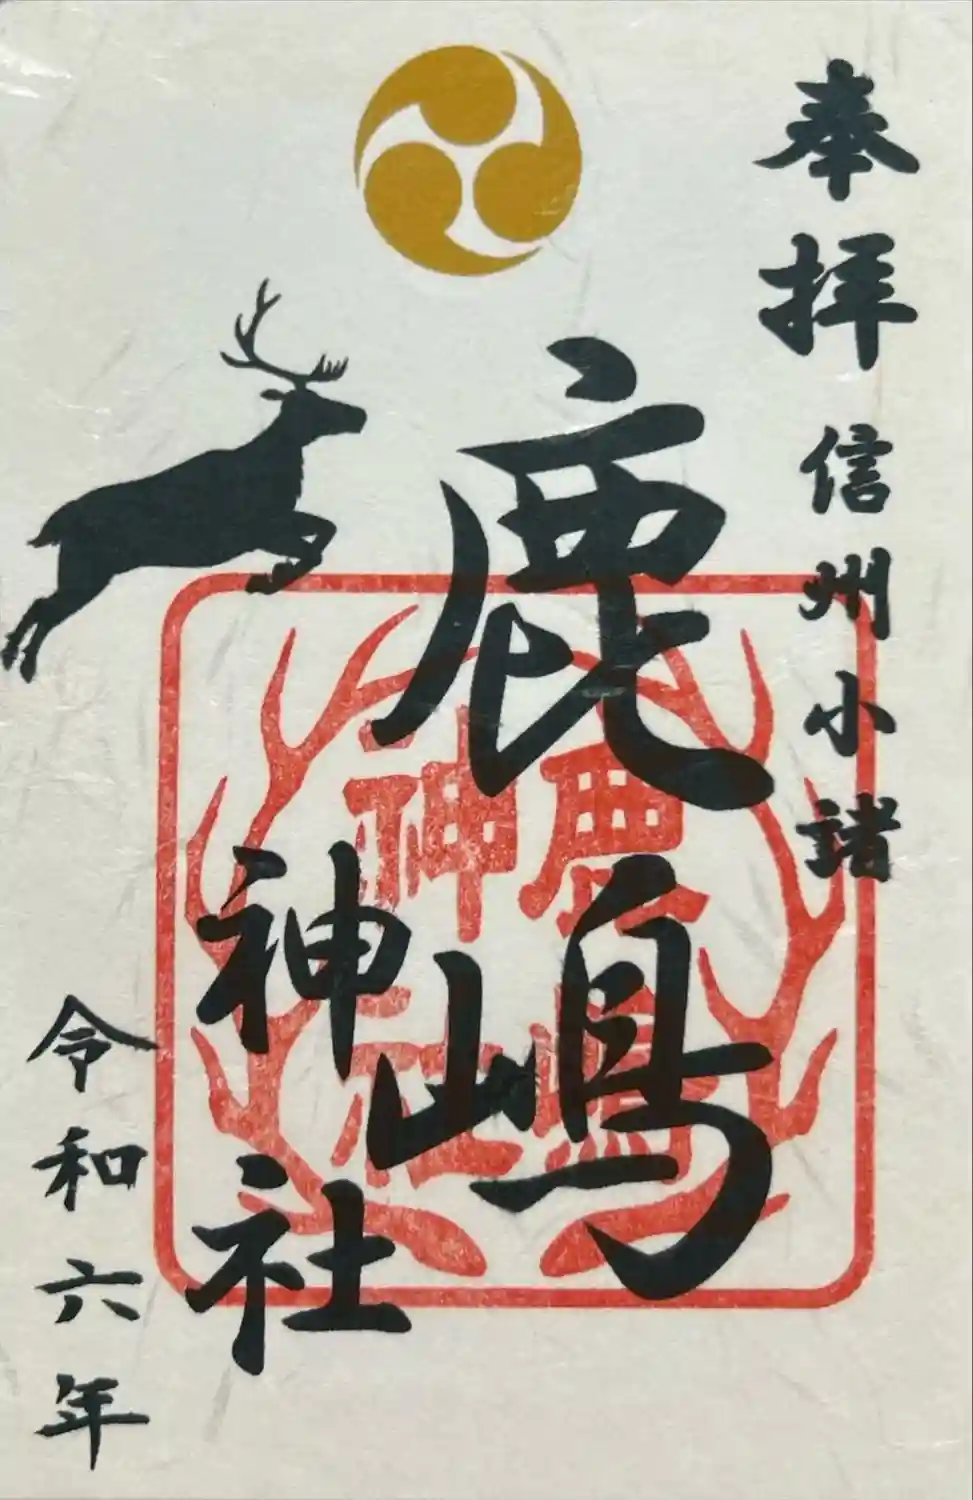 奉拝
信州小諸
鹿嶋
神社
令和六年
鹿嶋
神社